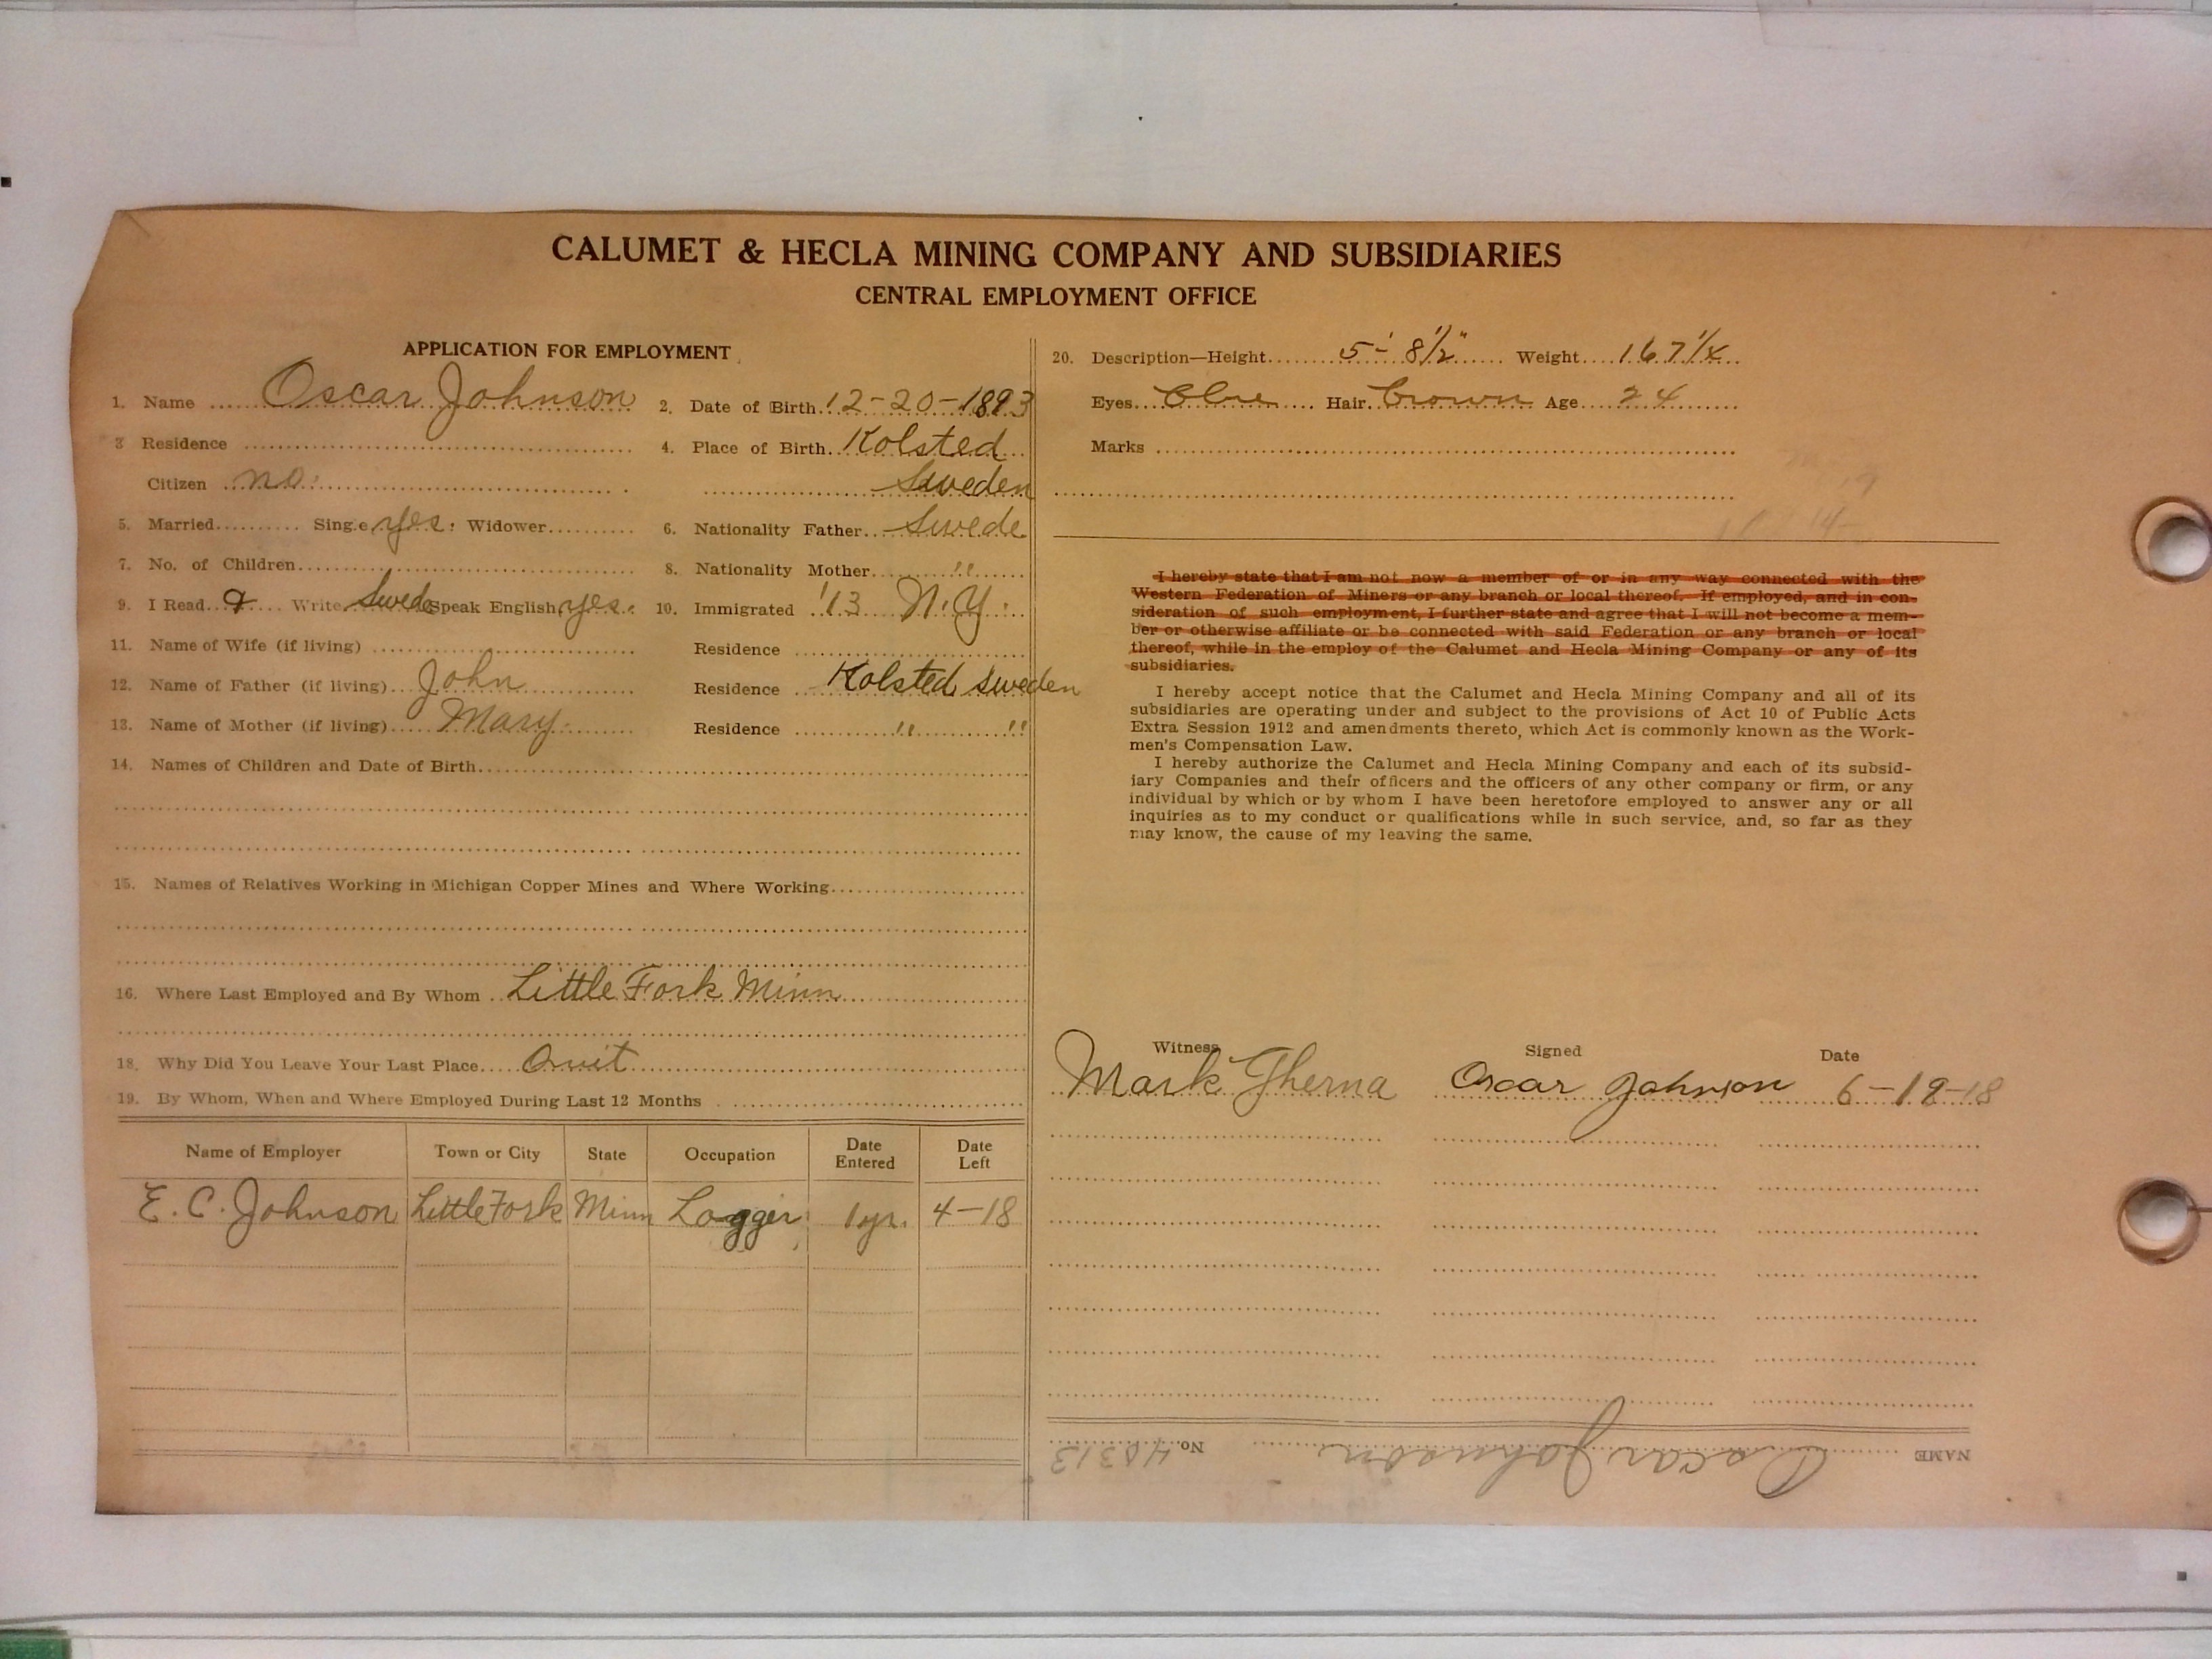 CALUMET & HECLA MINING COMPANY AND SUBSIDIARIES
CENTRAL EMPLOYMENT OFFICE
APPLICATION FOR EMPLOYMENT
1. Name Oscar Johnson 2. Date of Birth 12-20-1893
3 Residence 4. Place of Birth Kolsted
Citizen no. Sweden
5. Married Single yes. Widower 6. Nationality Father Swede
7. No. of Children 8. Nationality Mother "
9. I Read & Write Swede Speak English yes. 10. Immigrated '13 N.Y.
11. Name of Wife (if living) Residence
12. Name of Father (if living) John Residence Kolsted Sweden
13. Name of Mother (if living) Mary. Residence " "
14. Names of Children and Date of Birth
15. Names of Relatives Working in Michigan Copper Mines and Where Working
16. Where Last Employed and By Whom Little Fork Minn
18. Why Did You Leave Your Last Place Quit
19. By Whom, When and Where Employed During Last 12 Months
Name of Employer Town or City State Occupation Date Entered Date Left
E. C. Johnson Little Fork Minn Logger 1 yr. 4-18
20. Description—Height 5'- 8 1/2" Weight 167 1/2
Eyes Blue Hair Brown Age 24
Marks
I hereby state that I am not now a member of or in any way connected with the
Western Federation of Miners or any branch or local thereof. If employed, and in con-
sideration of such employment, I further state and agree that I will not become a mem-
ber or otherwise affiliate or be connected with said Federation or any branch or local
thereof, while in the employ of the Calumet and Hecla Mining Company or any of its
subsidiaries.
I hereby accept notice that the Calumet and Hecla Mining Company and all of its
subsidiaries are operating under and subject to the provisions of Act 10 of Public Acts
Extra Session 1912 and amendments thereto, which Act is commonly known as the Work-
men's Compensation Law.
I hereby authorize the Calumet and Hecla Mining Company and each of its subsid-
iary Companies and their officers and the officers of any other company or firm, or any
individual by which or by whom I have been heretofore employed to answer any or all
inquiries as to my conduct or qualifications while in such service, and, so far as they
may know, the cause of my leaving the same.
Witness Signed Date
Mark Oscar Johnson 6-19-18
NAME Oscar Johnson No. 40313